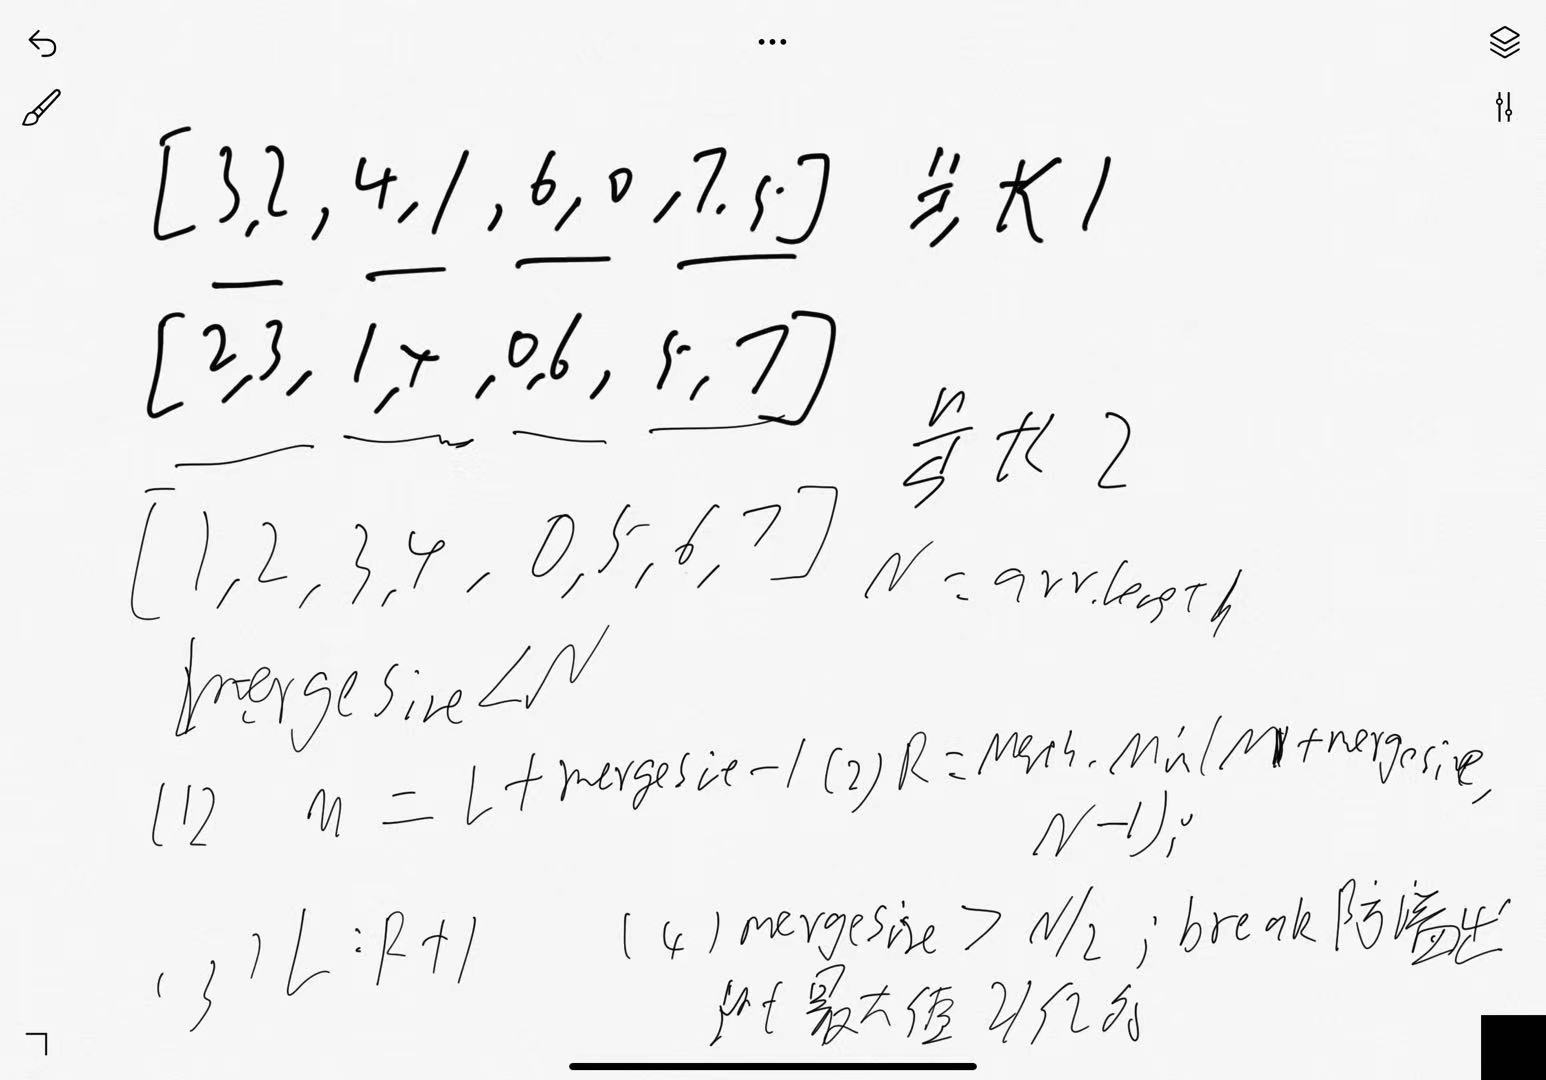 [3,2,4,1,6,0,7.5] 步长1
[2,3,1,4,0,6,5,7]
步长2
[1,2,3,4,0,5,6,7]
N=arr.length
mergesize<N
(1) M=L+mergesize-1 (2) R=Math.Min(M+mergesize,
N-1);
(3) L:R+1 (4) mergesize>N/2;break 防溢出
int 最大值 21亿多